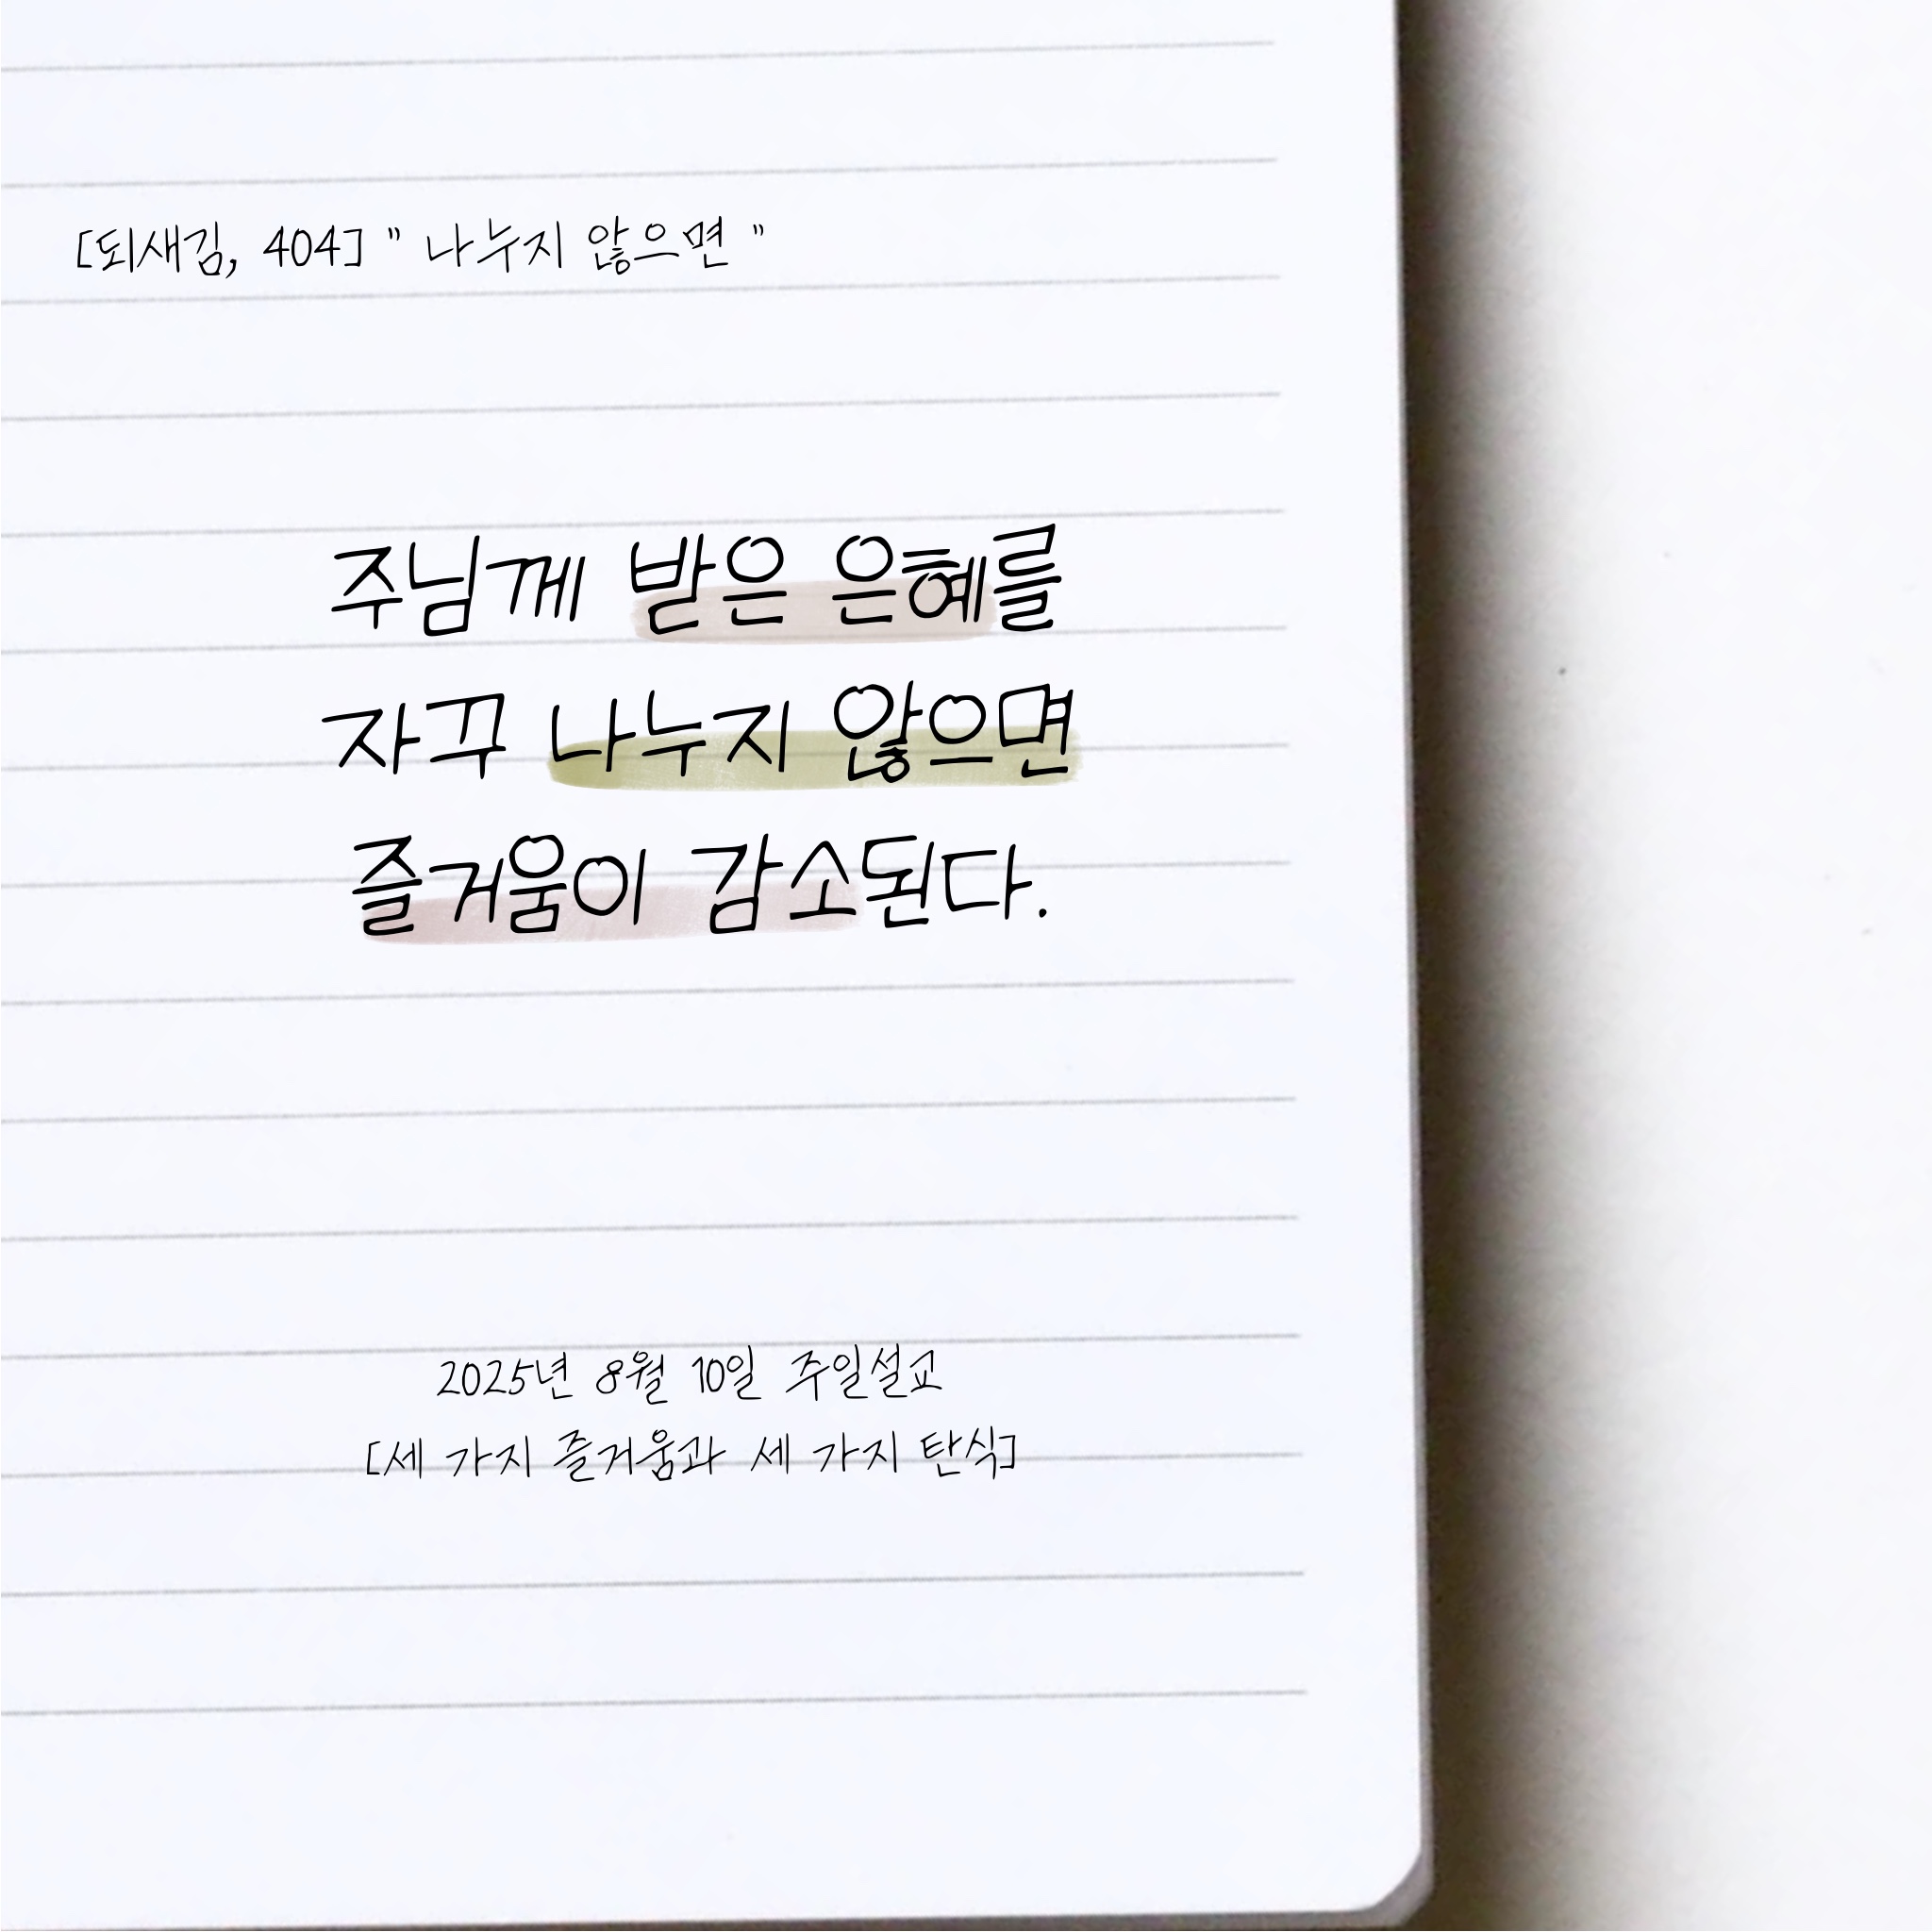 [되새김, 404] " 나누지 않으면 "
주님께 받은 은혜를
자꾸 나누지 않으면
즐거움이 감소된다.
2025년 8월 10일 주일설교
[세 가지 즐거움과 세 가지 탄식]